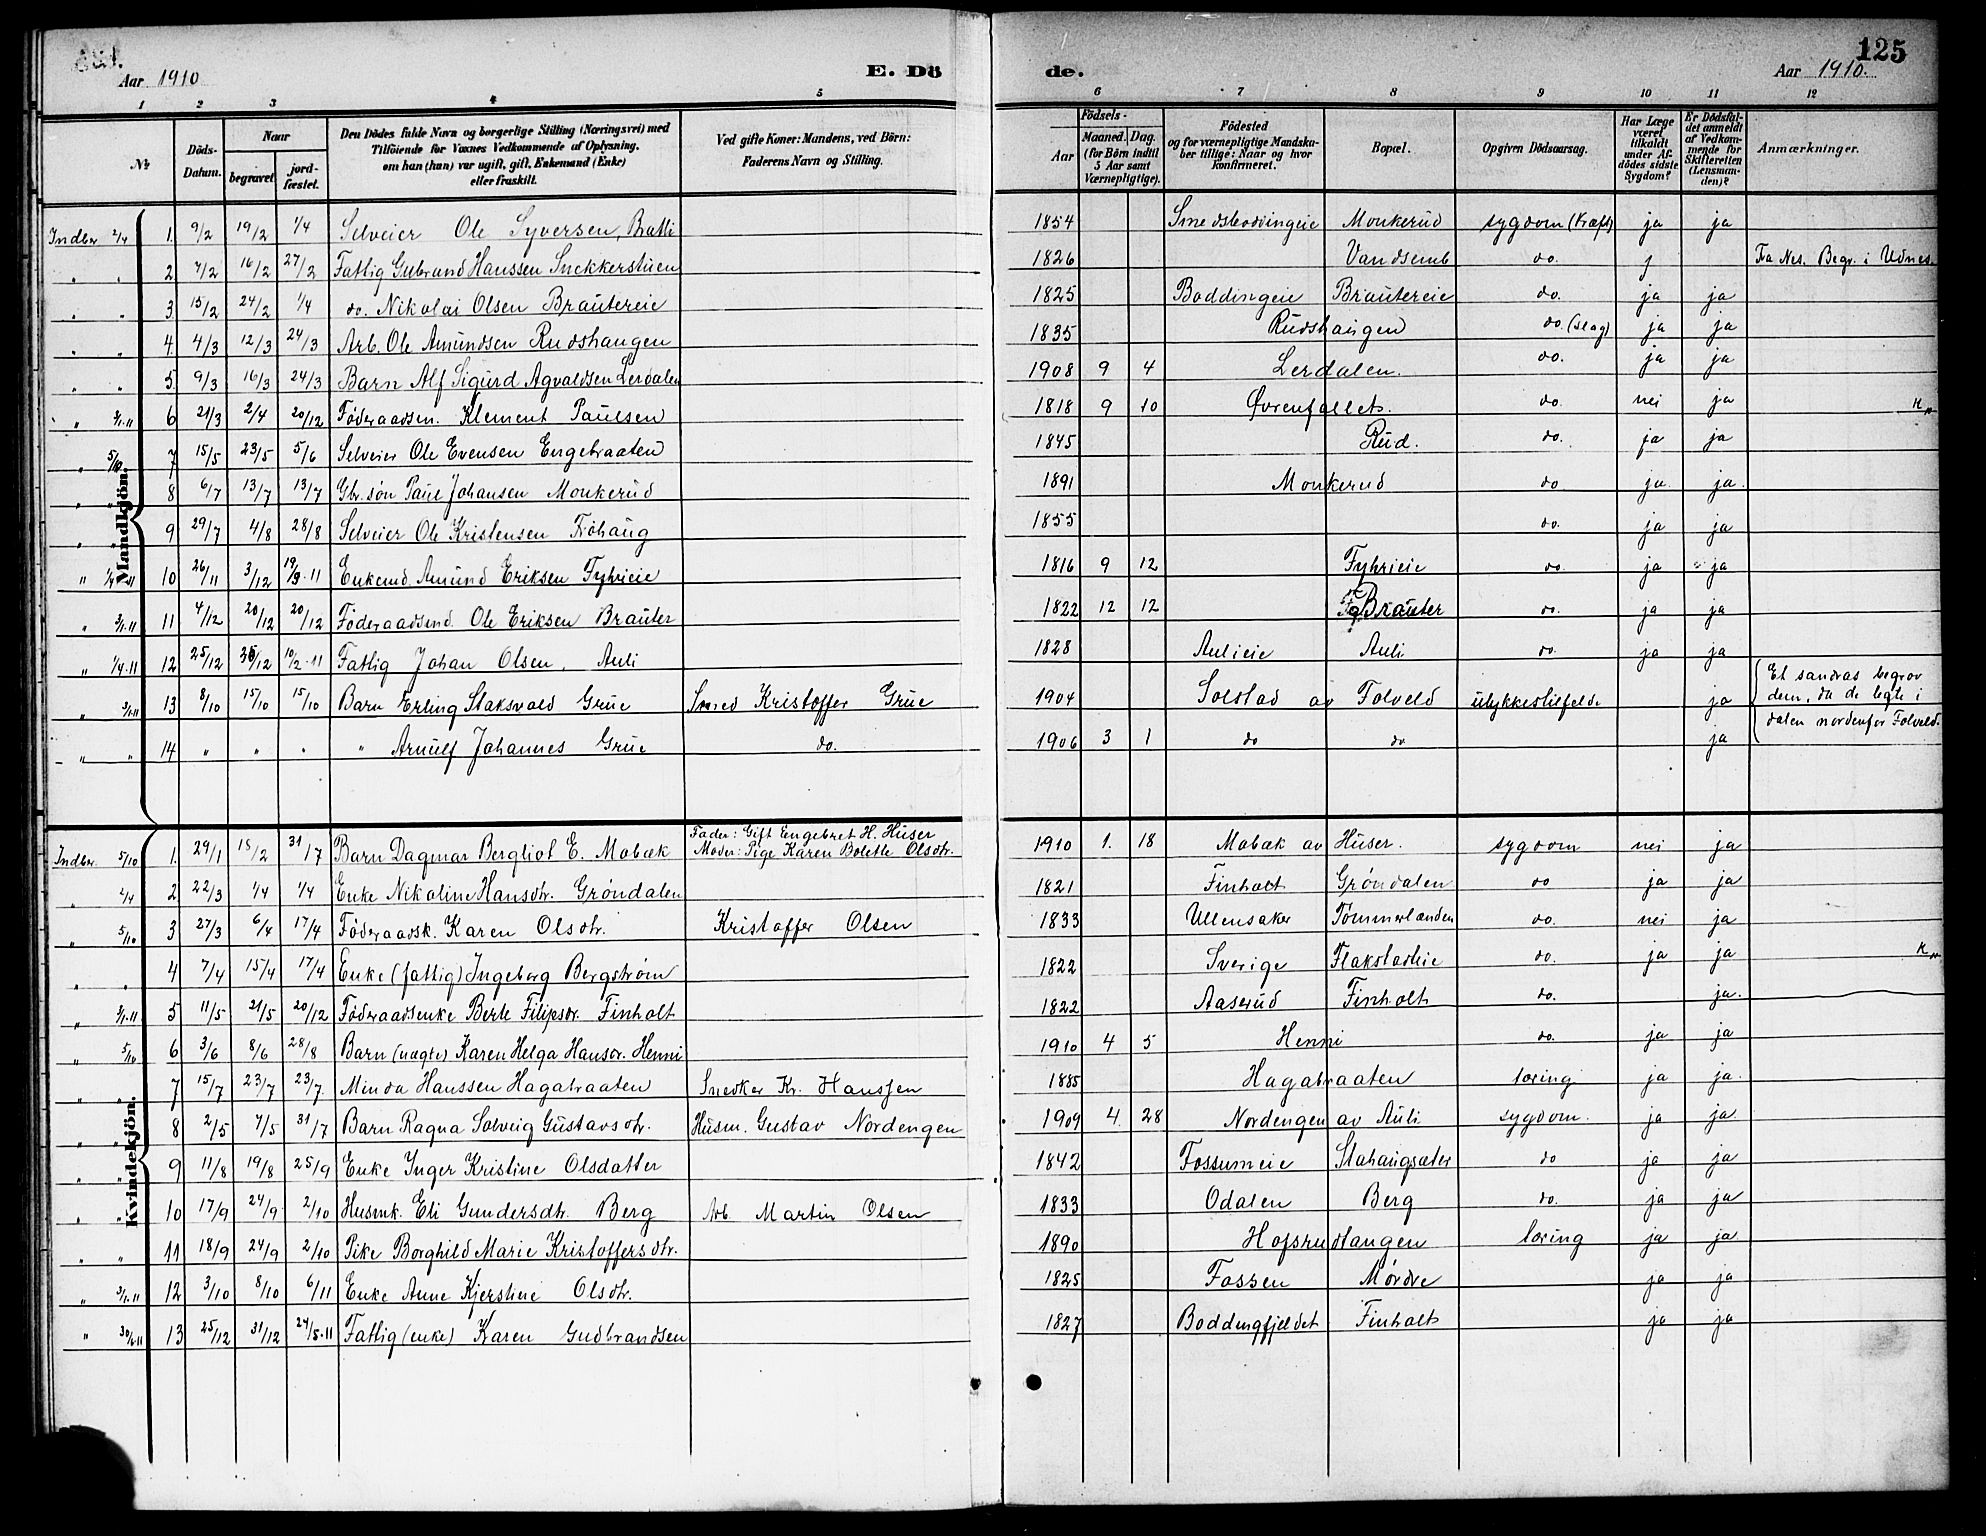 125
Aar 1910
E. Dö
de.
Aar 1910.
1 2 3 4 5 6 7 8 9 10 11 12
№
Döds-Datum.
Naar
begravet.
jord-fæstet.
Den Dödes fulde Navn og borgerlige Stilling (Næringsvei) med
Tilföiende for Voxnes Vedkommende af Oplysning,
om han (hun) var ugift, gift, Enkemand (Enke)
eller fraskilt.
Ved gifte Koner: Mandens, ved Börn:
Faderens Navn og Stilling.
Födsels-
Aar
Maaned. Dag.
(for Börn indtil
5 Aar samt
Værnepligtige).
Födested
og for værnepligtige Mandska-
ber tillige: Naar og hvor
konfirmeret.
Bopæl.
Opgiven Dödsaarsag.
Har Læge
været
tilkaldt
under Af-
dödes sidste
Sygdom?
Er Dödsfal-
det anmeldt
af Vedkom-
mende for
Skifteretten
(Lensman-
den)?
Anmærkninger.
Mandkjön.
Indber 2/4 1. 9/2 19/2 1/4 Selveier Ole Syversen, Bratli 1854 Monkerud sygdom (Kræft) ja ja
" " 2 7/2 16/2 27/2 Fattig Gubrand Hanssen Snekkerstuen 1826 Vandsemb do. j Fra Nes. Begr. i Udnes.
" " 3 15/2 24/2 1/4 do. Nikolai Olsen Brautereie 1825 Boddingeie Brautereie do. ja ja
" " 4. 4/3 12/3 24/3 Arb. Ole Amundsen Rudshaugen 1835 Rudshaugen do. (slag) ja ja
" " 5. 9/3 16/3 24/3 Barn Alf Sigurd Agvaldsen Lerdalen 1908 9 4 Lerdalen. do. ja ja
" 3/1.11 6 21/3 2/4 20/12 Föderaadsm. Klement Paulsen 1818 9 10 Øvrenfallets. do. nei ja
" 5/10 7 15/5 23/5 5/6 Selveier Ole Evensen Engebraaten 1845 Rud. do. ja ja
" " 8 6/7 13/7 13/7 Gbr. søn Paul Johansen Monkerud 1891 Monkerud do. ja. ja.
" " 9 29/7 4/8 28/8 Selveier Ole Kristensen Frøhaug 1855 do. ja ja
" 10 26/11 3/12 19/3.11 Enkemd. Amund Eriksen Fyhrieie 1816 9 12 Fyhrieie do. ja ja
" 3/1.11 11 4/12 20/12 20/12 Föderaadsmd. Ole Eriksen Brauter 1822 12 12 Brauter do. ja ja
" 1/4.11 12 25/12 10/2.11 Fattig Johan Olsen, Auli 1828 Aulieie Auli do. ja ja
" 3/1.11 13 8/10 15/10 15/10 Barn Erling Staksvold Grue Smed Kristoffer Grue 1904 Solstad av Folveld ulykkestilfelde ja
" " 14 " " " " Arnulf Johannes Grue do. 1906 3 1 do do ja
Et sandras begrov
dem, da de legte i
dalen nordenfor Folveld.
Kvindekjön.
Indber. 5/10 1. 29/1 18/2 31/7 Barn Dagmar Bergliot E. Mobæk Fader: Gift Engebret H. Huser
Moder: Pige Karen Bolette Olsdtr. 1910 1. 18 Mobæk av Huser. sygdom nei ja
" 2/4 2 22/3 1/4 1/4 Enke Nikoline Hansdtr. Grøndalen 1821 Finholt Grøndalen do ja ja
" 5/10 3 27/3 6/4 17/4 Föderaadsk. Karen Olsdtr. Kristoffer Olsen 1833 Ullensaker Tømmerlanden do. nei ja
" " 4 7/4 15/4 17/4 Enke (fattig) Ingeborg Bergstrøm 1822 Sverige Flakstadeie do. ja ja
" 3/1.11 5 11/5 21/5 20/12 Föderaadsenke Berte Filipsdr. Finholt 1822 Aaserud Finholt do. ja.
" 5/10 6 3/6 8/6 28/8 Barn (uægte) Karen Helga Hansdr. Henni 1910 4 5 Henni do. ja ja
" " 7 15/7 23/7 23/7. Minda Hanssen Hagabraaten Snedker Kr. Hanssen 1885 Hagabraaten tæring ja ja.
" " 8 2/5 7/5 31/7 Barn Ragna Solveig Gustavsdtr. Husm. Gustav Nordengen 1909 4 28 Nordengen av Auli sygdom. ja ja
" " 9 11/8 19/8 25/9 Enke Inger Kristine Olsdatter 1842 Fossumeie Stahaugsæter do ja ja
" " 10 17/9 24/9 2/10 Husmk. Eli Gundersdtr. Berg Arb. Martin Olsen 1833 Odalen Berg do. ja ja
" " 11 18/9 24/9 2/10 Pike Borghild Marie Kristoffersdtr. 1890 Hofsrudtangen tæring ja ja
" 3/1.11 12 3/10 8/10 6/11 Enke Anne Kjerstine Olsdtr. 1825 Fossen Mørdre ja ja
" 13 25/12 31/12 24/5.11 Fattig (enke) Karen Gudbrandsen 1827 Boddingfjeldet Finholt ja ja